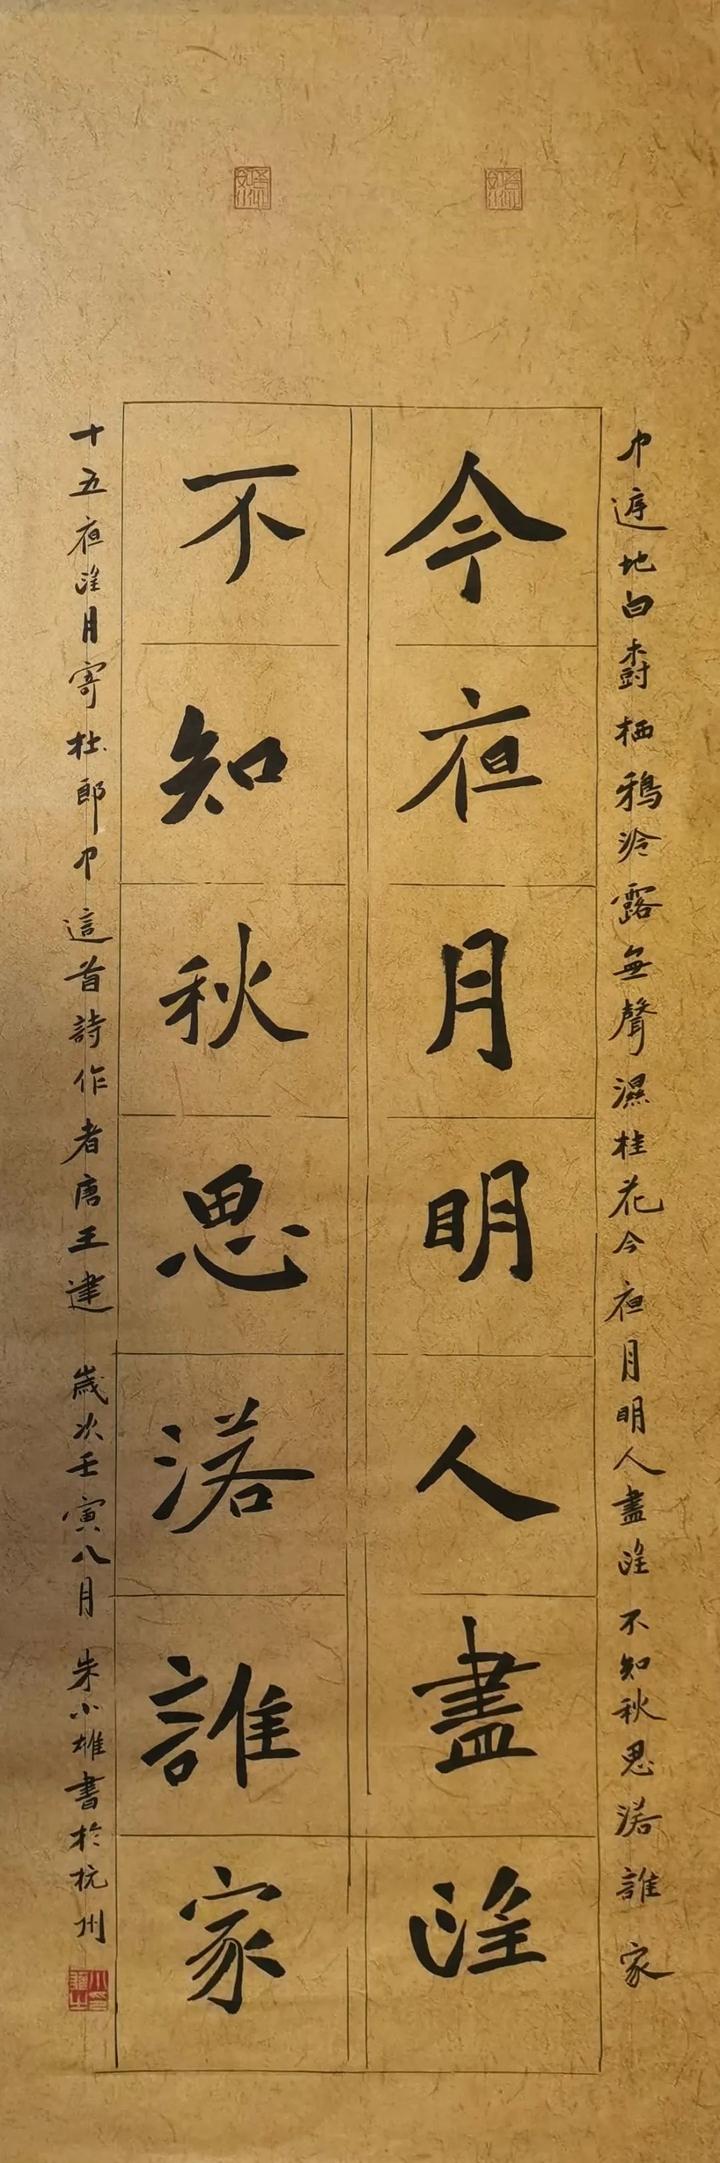 中庭地白樹栖鴉泠露無聲濕桂花今夜月明人盡望不知秋思落誰家
今夜月明人盡望
不知秋思落誰家
十五夜望月寄杜郎中這首詩作者唐王建 歲次壬寅八月 朱小雄書於杭州